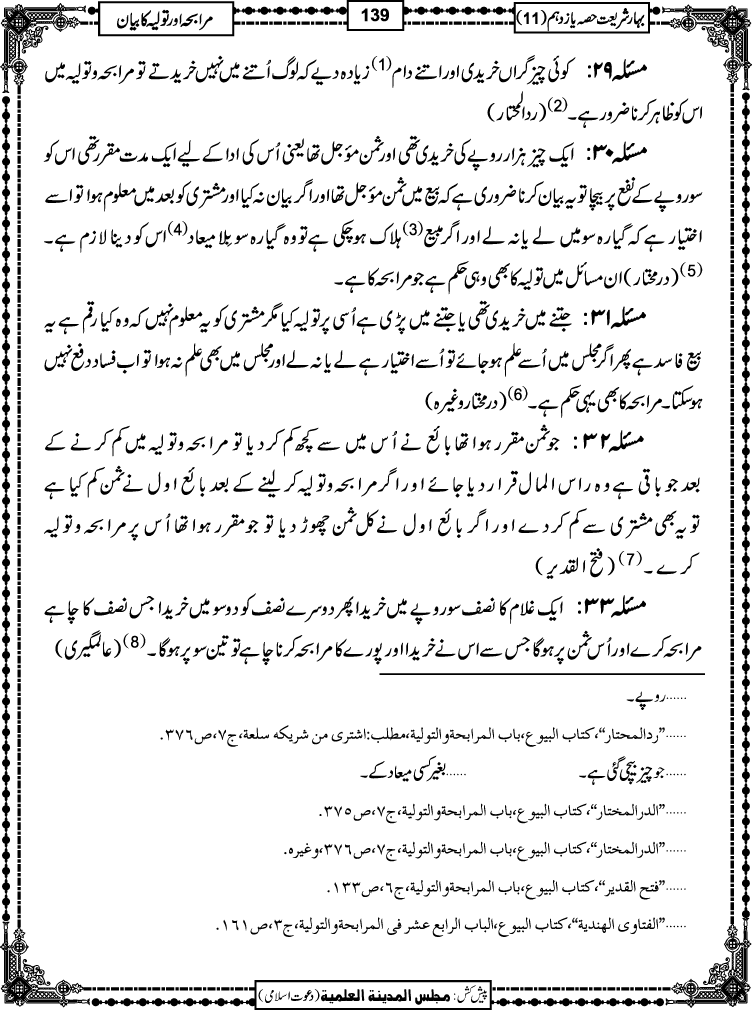 بہارِ شریعت حصہ یازدہم (11)
139
مرابحہ اور تولیہ کا بیان
مسئلہ ۲۹: کوئی چیز گراں خریدی اور اتنے دام(1) زیادہ دیے کہ لوگ اُتنے میں نہیں خریدتے تو مرابحہ و تولیہ میں
اس کو ظاہر کرنا ضرور ہے۔(2) (ردالمحتار)
مسئلہ ۳۰: ایک چیز ہزار روپے کی خریدی تھی اور ثمن مؤجل تھا یعنی اُس کی ادا کے لیے ایک مدت مقرر تھی اس کو
سو روپے کے نفع پر بیچا تو یہ بیان کرنا ضروری ہے کہ بیع میں ثمن مؤجل تھا اور اگر بیان نہ کیا اور مشتری کو بعد میں معلوم ہوا تو اسے
اختیار ہے کہ گیارہ سو میں لے یا نہ لے اور اگر مبیع(3) ہلاک ہوچکی ہے تو وہ گیارہ سو بلا میعاد(4) اس کو دینا لازم ہے۔
(5) (درمختار) ان مسائل میں تولیہ کا بھی وہی حکم ہے جو مرابحہ کا ہے۔
مسئلہ ۳۱: جتنے میں خریدی تھی یا جتنے میں پڑی ہے اُسی پر تولیہ کیا مگر مشتری کو یہ معلوم نہیں کہ وہ کیا رقم ہے یہ
بیع فاسد ہے پھر اگر مجلس میں اُسے علم ہوجائے تو اُسے اختیار ہے لے یا نہ لے اور مجلس میں بھی علم نہ ہوا تو اب فساد دفع نہیں
ہوسکتا۔ مرابحہ کا بھی یہی حکم ہے۔(6) (درمختار وغیرہ)
مسئلہ ۳۲: جو ثمن مقرر ہوا تھا بائع نے اُس میں سے کچھ کم کردیا تو مرابحہ و تولیہ میں کم کرنے کے
بعد جو باقی ہے وہ راس المال قرار دیا جائے اور اگر مرابحہ و تولیہ کرلینے کے بعد بائع اول نے ثمن کم کیا ہے
تو یہ بھی مشتری سے کم کردے اور اگر بائع اول نے کل ثمن چھوڑ دیا تو جو مقرر ہوا تھا اُس پر مرابحہ و تولیہ
کرے۔(7) (فتح القدیر)
مسئلہ ۳۳: ایک غلام کا نصف سو روپے میں خریدا پھر دوسرے نصف کو دو سو میں خریدا جس نصف کا چاہے
مرابحہ کرے اور اُس ثمن پر ہوگا جس سے اس نے خریدا اور پورے کا مرابحہ کرنا چاہے تو تین سو پر ہوگا۔(8) (عالمگیری)
......روپے۔
......”ردالمحتار“،کتاب البیوع،باب المرابحةوالتولیة،مطلب:اشتری من شریکه سلعة،ج۷،ص۳۷۶.
......جو چیز بیچی گئی ہے۔ ......بغیر کسی میعاد کے۔
......”الدرالمختار“،کتاب البیوع،باب المرابحةوالتولیة،ج۷،ص۳۷۵.
......”الدرالمختار“،کتاب البیوع،باب المرابحةوالتولیة،ج۷،ص۳۷۶،وغیرہ.
......”فتح القدیر“،کتاب البیوع،باب المرابحةوالتولیة،ج۶،ص۱۳۳.
......”الفتاوی الهندیة“،کتاب البیوع،الباب الرابع عشر فی المرابحةوالتولیة،ج۳،ص۱۶۱.
پیش کش: مجلس المدینة العلمیة (دعوت اسلامی)